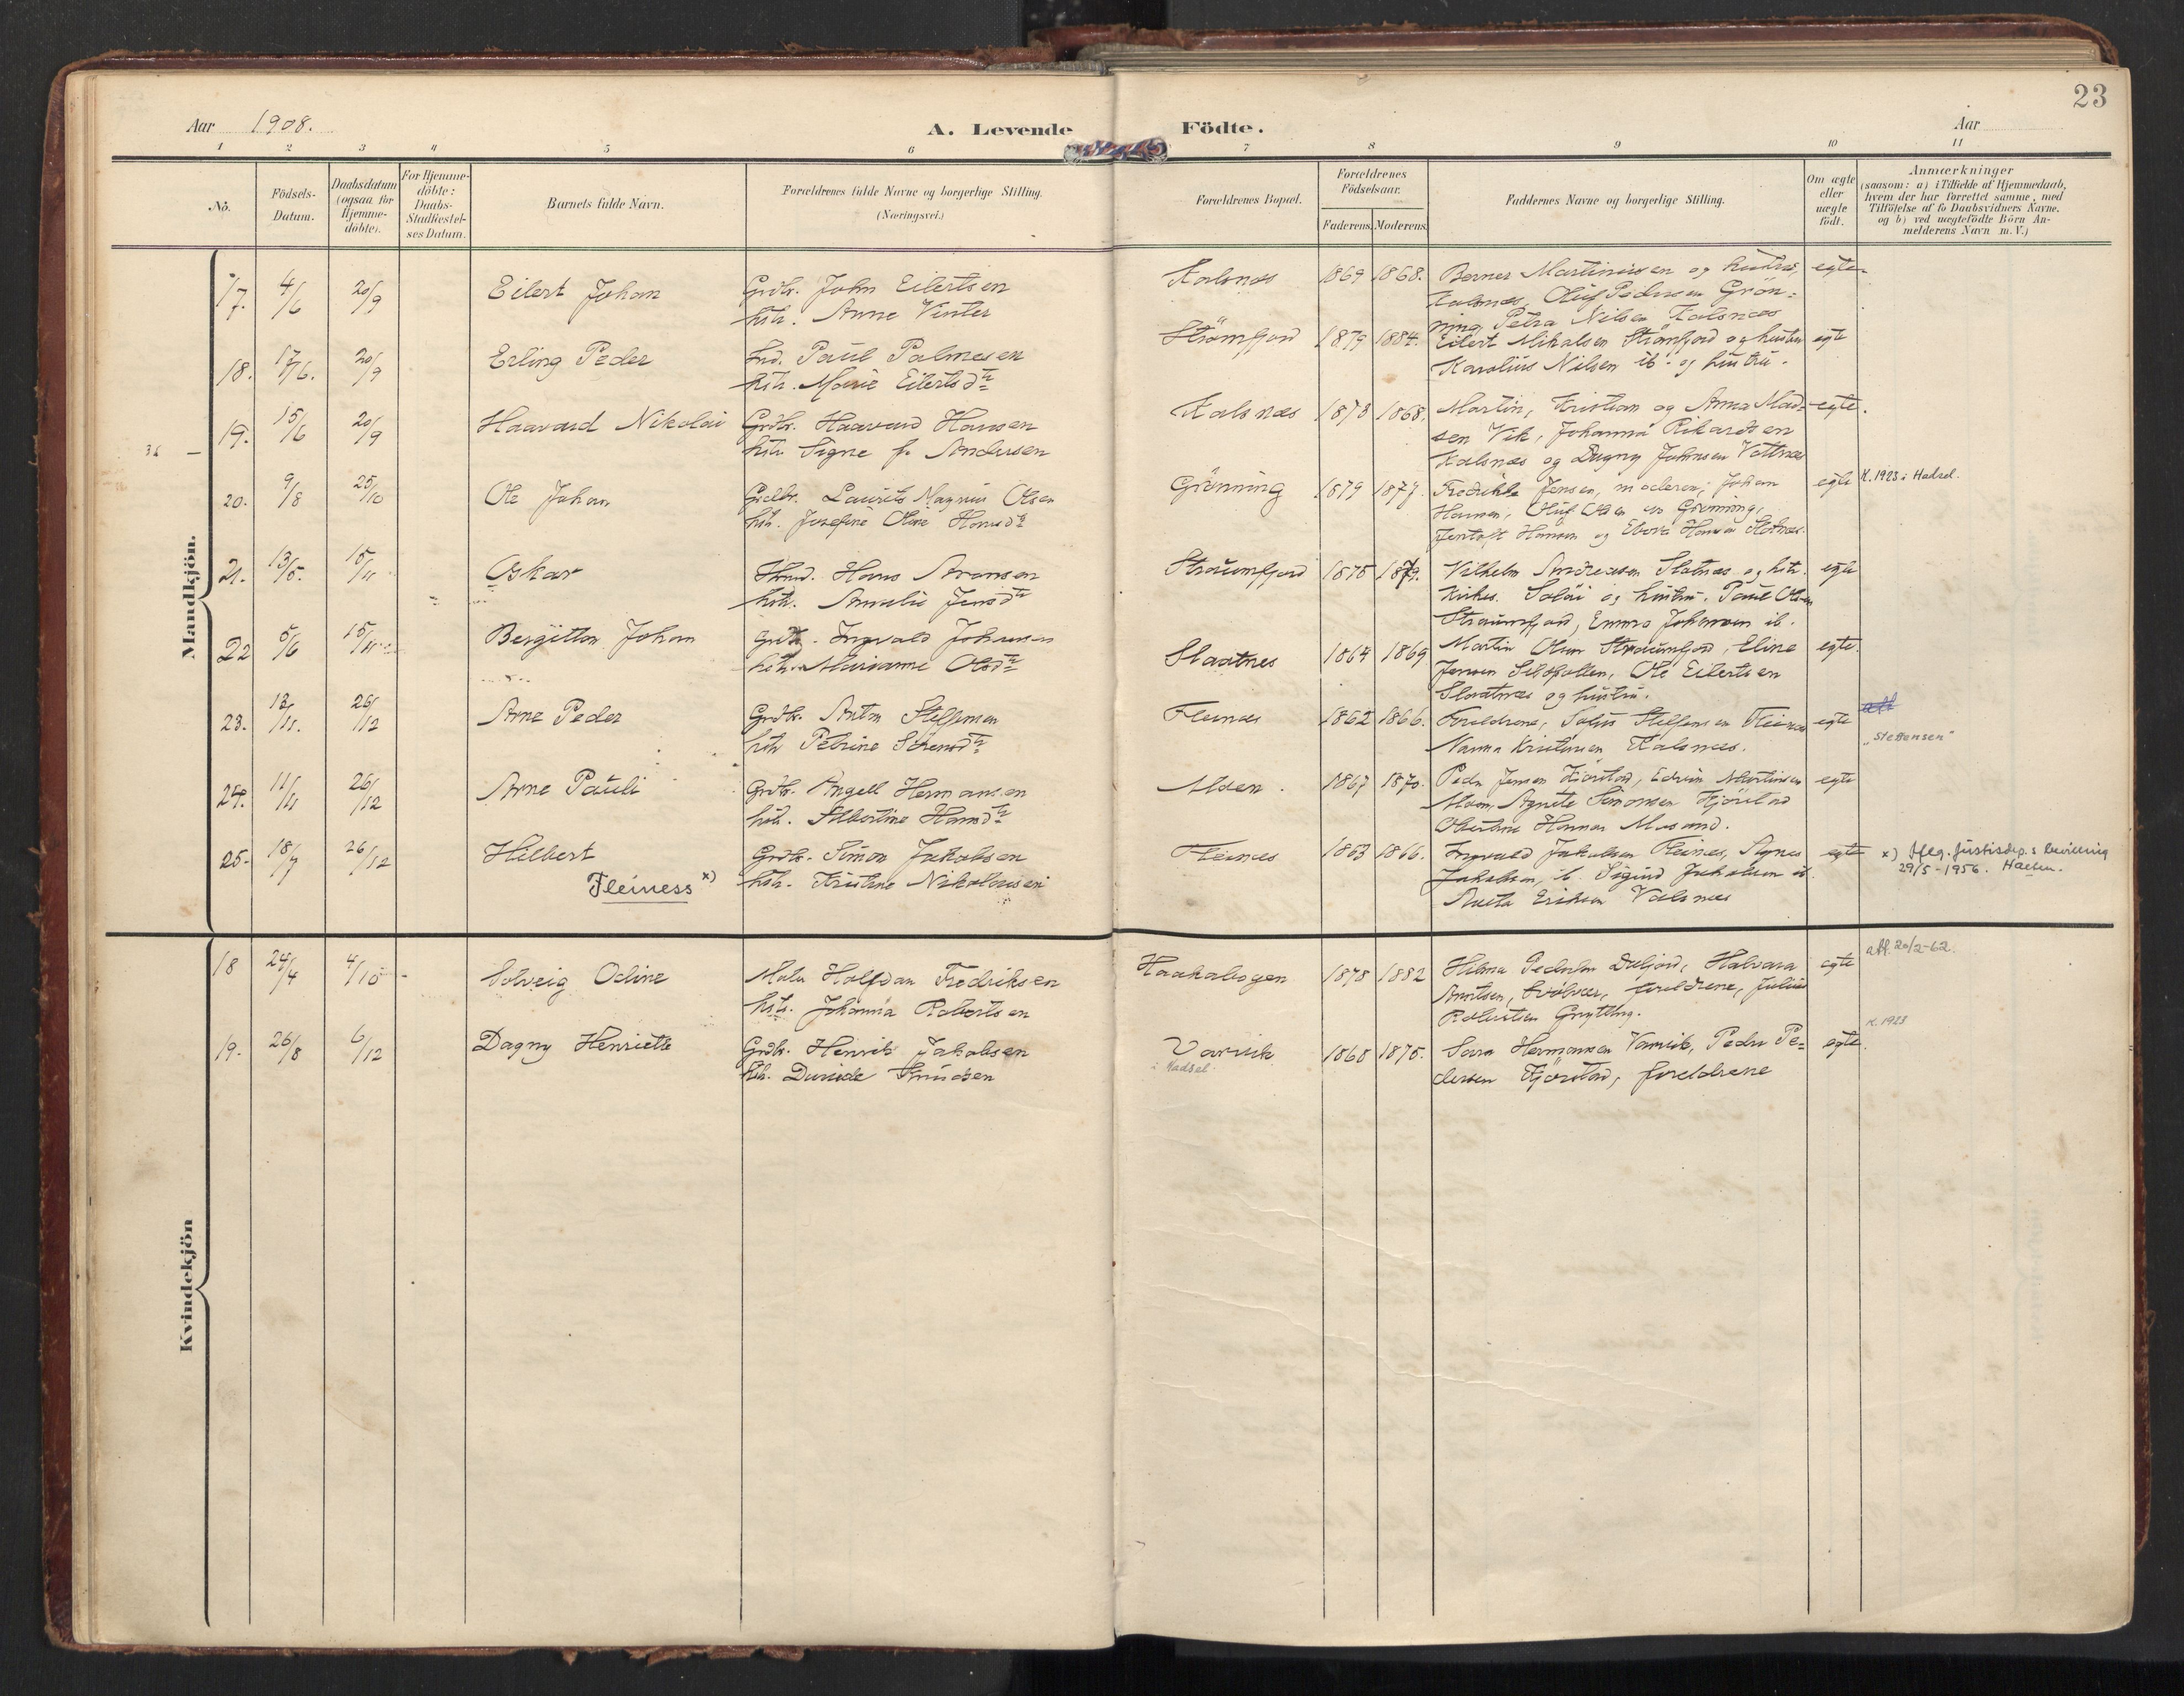 23
Aar 1908.
A. Levende Födte.
Aar
1 2 3 4 5 6 7 8 9 10 11
No.
Födsels-Datum.
Daabsdatum (ogsaa for Hjemme-döbte).
For Hjemme-döbte: Daabs-Stadfæstel-ses Datum.
Barnets fulde Navn.
Forældrenes fulde Navne og borgerlige Stilling. (Næringsvei.)
Forældrenes Bopæl.
Forældrenes Födselsaar.
Faderens. Moderens.
Faddernes Navne og borgerlige Stilling.
Om ægte eller uægte födt.
Anmærkninger
(saasom: a) i Tilfælde af Hjemmedaab,
hvem der har forrettet samme, med
Tilföielse af to Daabsvidners Navne.
og b) ved uægtefödte Börn An-
melderens Navn m. V.)
Mandkjön.
17. 4/6 20/9 Eilert Johan
Grdbr. John Eilertsen
hstr. Anne Vinter
Kalsnæs 1869 1868.
Berner Martinussen og hustru,
Kalsnæs, Oluf Pedersen Grøn-
ning, Petra Nilsen Kalsnæs
egte
18. 17/6. 20/9 Erling Peder
Ind. Paul Palmesen
hstr. Marie Eilertsdtr
Strömfjord 1879 1884.
Eilert Mikalsen Strömfjord og hustru
Karolius Nilsen ib. og hustru.
egte
19. 15/6 20/9 Haavard Nikolai
Grdbr. Haavard Hansen
hstr. Signe f. Andersen
Kalsnæs 1873 1868.
Martin, Kristian og Anna Mad-
sen Vik, Johanna Rikardsen
Kalsnæs og Dagny Johnsen Vottnes
egte.
20. 9/8 25/10 Ole Johan
Grdbr. Laurits Magnus Olsen
hstr. Josefine Oline Hansdtr
Grönning 1879 1877.
Fredrikke Jensen, moderen, Johan
Hansen, Oluf Olsen Grønning,
Jentoft Hansen og Hansen Slotnæs.
egte K. 1923 i Hadsel.
21. 13/5. 15/11 Oskar
Hans Aronsen
hstr. Amalie Jensdtr
Straumfjord 1875 1879.
Vilhelm Andreasen Slotnæs og hstr.
Kirkes. Soløi og hustru. Paul Olsen
Straumfjord, Emma Johansen ib.
egte
22 5/6 15/11 Bergitton Johan
Grdbr. Ingvald Johansen
hstr. Marianne Olsdtr
Slaatnes 1864 1869
Martin Olsen Straumfjord, Eline
Jensen Sildpollen, Ole Eilertsen
Slaatnes og hustru.
egte.
23. 12/11. 26/12 Arne Peder
Grdbr. Anton Steffensen
hstr Petrine Sörensdtr
Fleinæs 1862 1866.
Foreldrene, Steffensen Fleinæs
Nanna Kristensen Kalsnæs.
egte att
„Steffensen"
24. 11/11 26/12 Arne Pauli
Grdbr. Angell Hermansen
hstr. Albertine Hansdtr
Alsen. 1867 1870.
Peder Jensen Kjörstad, Edvin Martinsen
Alsen, Agnete Simonsen Kjörstad
Hansen
egte
25. 18/7 26/12 Hilbert
Fleiness x)
Grdbr. Simon Jakobsen
hstr. Kristine Nikolaisen
Fleinæs 1863 1866.
Ingvald Jakobsen Fleines, Agnes
Jakobsen, ib. Sigurd Jakobsen ib.
Eriksen Valsnæs
egte x) Iflg. Justisdep.s bevilling
29/5-1956. Haesen.
Kvindekjön
18 24/4 4/10 Solveig Odine
Maler Halfdan Fredriksen
hstr. Johanna Robertsen
Haakabogen 1878 1882
Hilma Pedersen Deljord, Halvara
Arntsen, Svolvær, foreldrene, Julius
Robertsen Grytting.
egte att. 20/2-62.
19. 26/8 6/12 Dagny Henriette
Grdbr. Henrik Jakobsen
hstr. Davida Knudsen
Varvik
i Hadsel.
1868 1875.
Sara Hermansen Varvik, Peder Pe-
dersen Kjörstad, foreldrene
egte. K. 1923